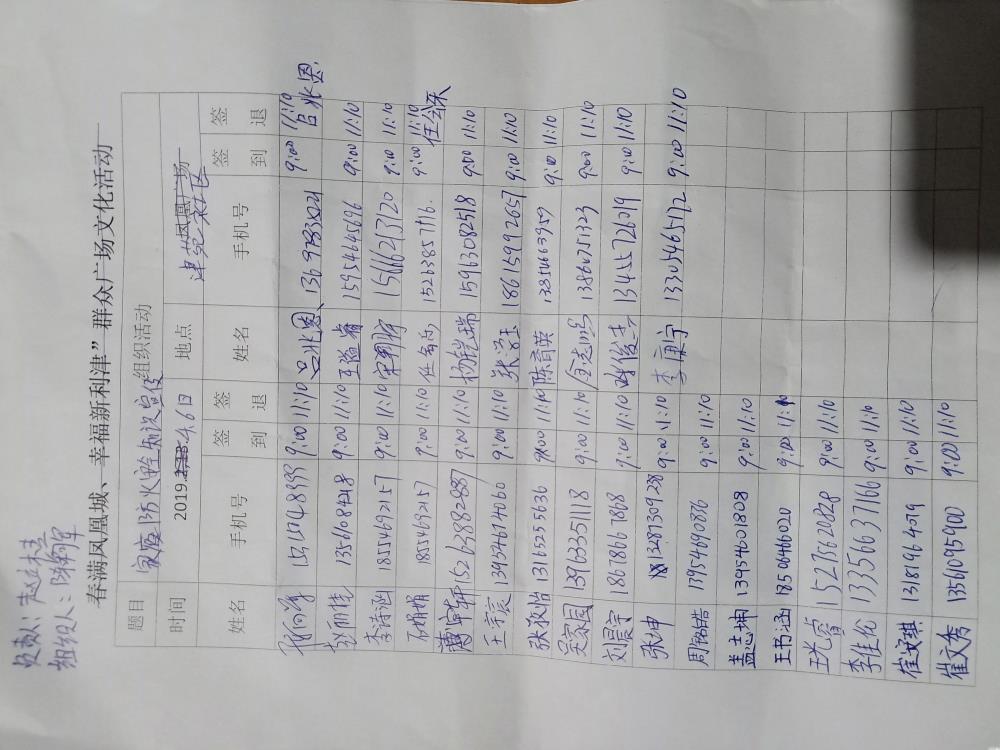 负责人：赵
组织人：陈
春满凤凰城、幸福新利津”群众广场文化活动
题目 家庭防火安全知识宣传 组织活动
时间 2019 4.6日 地点 津苑社区 凤凰广场
姓名 手机号 签到 签退 姓名 手机号 签到 签退
9:00 11:10 吕兆恩 9:00 11:10 吕兆恩
赵丽桂 13561084218 9:00 11:10 王溢睿 15954645696 9:00 11:10
李诗涵 18554692157 9:00 11:10 15666213120 9:00 11:10
石娟娟 18554692157 9:00 11:10 任会乐 15263857716. 9:00 11:10 任会乐
15263882887 9:00 11:10 杨铠瑞 15963082518 9:00 11:10
王宗宸 13954674060 9:00 11:10 张洺玉 18615992657 9:00 11:10
张敬怡 13165255636 9:00 11:10 陈育英 13854663959 9:00 11:10
吴家园 13963351118 9:00 11:10 13860751323 9:00 11:10
刘晨宇 18678667868 9:00 11:10 邓俊杰 13455726019 9:00 11:10
张坤 13287309238 9:00 11:10 李康宁 13305465172 9:00 11:10
周铭皓 13954690876 9:00 11:10
盖志坤 13954601808 9:00 11:10
王书涵 18505466020 9:00 11:10
王光睿 15275620828 9:00 11:10
李佳伦 13356637166 9:00 11:10
崔安琪 13181964079 9:00 11:10
崔文秀 13561095900 9:00 11:10